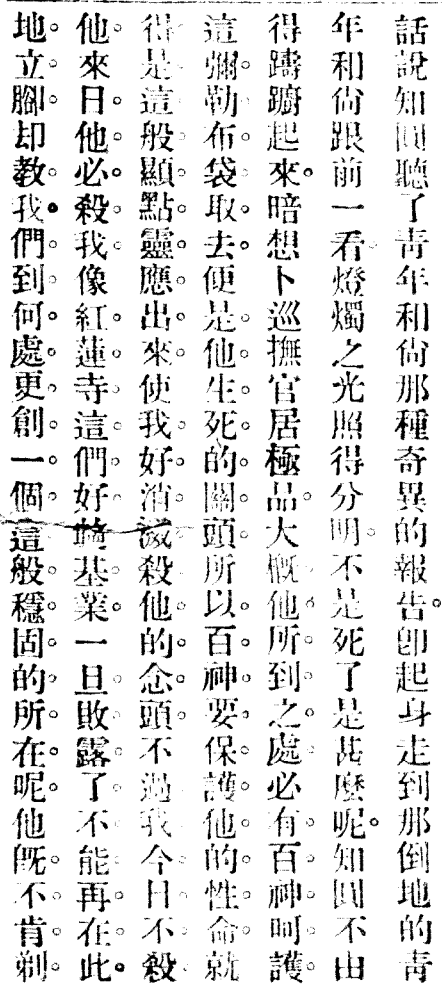 話說知圓聽了靑年和尙那種奇異的報告。卽起身走到那倒地的靑
年和尙跟前一看。燈燭之光照得分明。不是死了是甚麼呢。知圓不由
得躊躇起來。暗想卜巡撫官居極品。大槪他所到之處必有百神呵護。
這彌勒布袋取去。便是他生死的關頭。所以百神要保護他的性命。就
得是這般顯點靈應出來。使我好消滅殺他的念頭。不過我今日不殺
他。來日他必殺我。像紅蓮寺這們好的基業。一旦敗露了。不能再在此
地立腳。却敎我們到何處更創一個這般穩固的所在呢。他旣不肯剃